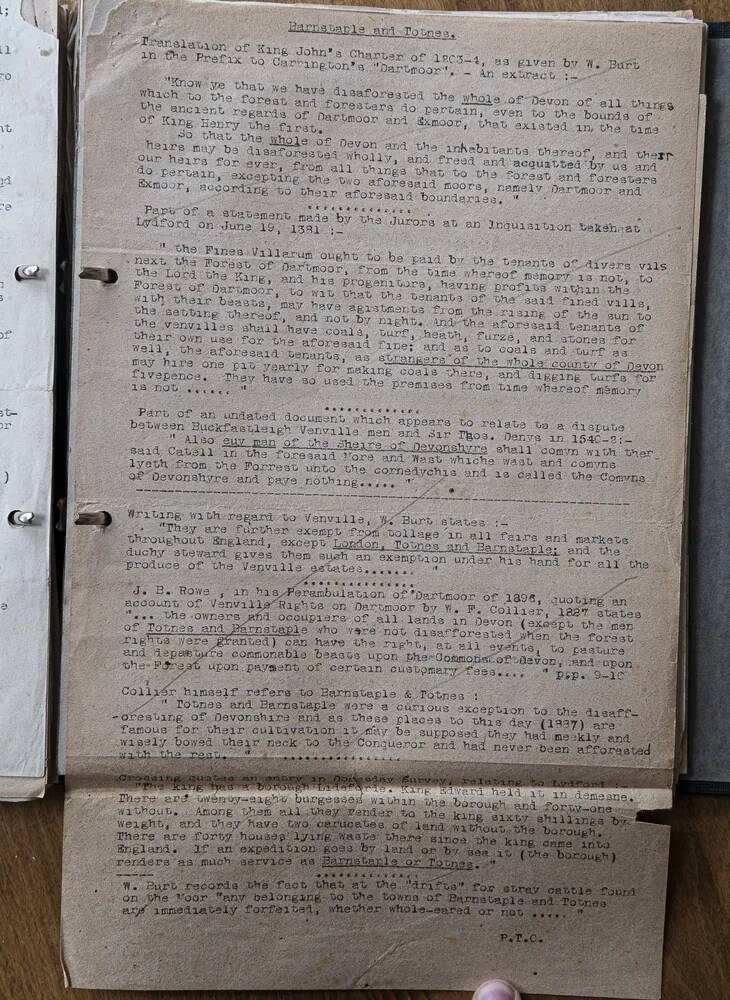 Barnstaple and Totnes.
Translation of King John's Charter of 1203-4, as given by W. Burt
in the Prefix to Carrington's "Dartmoor". - An extract :-
"Know ye that we have disaforested the whole of Devon of all things
which to the forest and foresters do pertain, even to the bounds of
the ancient regards of Dartmoor and Exmoor, that existed in the time
of King Henry the first.
So that the whole of Devon and the inhabitants thereof, and their
heirs may be disaforested wholly, and freed and acquitted by us and
our heirs for ever, from all things that to the forest and foresters
do pertain, excepting the two aforesaid moors, namely Dartmoor and
Exmoor, according to their aforesaid boundaries. "
Part of a statement made by the Jurors at an Inquisition taken at
Lydford on June 19, 1381 :-
" the Fines Villarum ought to be paid by the tenants of divers vils
next the Forest of Dartmoor, from the time whereof memory is not, to
the Lord the King, and his progenitors, having profits within the
Forest of Dartmoor, to wit that the tenants of the said fined vills,
with their beasts, may have agistments from the rising of the sun to
the setting thereof, and not by night. And the aforesaid tenants of
the venvilles shall have coals, turf, heath, furze, and stones for
their own use for the aforesaid fine; and as to coals and turf as
well, the aforesaid tenants, as strangers of the whole county of Devon
may hire one pit yearly for making coals there, and digging turfs for
fivepence. They have so used the premises from time whereof memory
is not ...... "
Part of an undated document which appears to relate to a dispute
between Buckfastleigh Venville men and Sir Thos. Denys in 1540-2:-
" Also euy man of the Sheire of Devonshyre shall comyn with ther
said Catell in the foresaid More and Wast whiche wast and comyns
lyeth from the Forrest unto the cornedychis and is called the Comyns
of Devonshyre and paye nothing..... "
Writing with regard to Venville, W. Burt states :-
"They are further exempt from tollage in all fairs and markets
throughout England, except London, Totnes and Barnstaple; and the
duchy steward gives them such an exemption under his hand for all the
produce of the Venville estates....... "
J. B. Rowe , in his Perambulation of Dartmoor of 1896, quoting an
account of Venville Rights on Dartmoor by W. F. Collier, 1887 states
"... the owners and occupiers of all lands in Devon (except the men
of Totnes and Barnstaple who were not disafforested when the forest
rights were granted) can have the right, at all events, to pasture
and depasture commonable beasts upon the Commons of Devon, and upon
the Forest upon payment of certain customary fees.... " p.p. 9-10
Collier himself refers to Barnstaple & Totnes :
" Totnes and Barnstaple were a curious exception to the disaff-
oresting of Devonshire and as these places to this day (1887) are
famous for their cultivation it may be supposed they had meekly and
wisely bowed their neck to the Conqueror and had never been afforested
with the rest. "
Crossing quotes an entry in Domesday Survey, relating to Lydford :-
"The king has a borough Lideforde. King Edward held it in demesne.
There are twenty-eight burgesses within the borough and forty-one
without. Among them all they render to the king sixty shillings by
weight, and they have two carucates of land without the borough.
There are forty houses lying waste there since the king came into
England. If an expedition goes by land or by sea it (the borough)
renders as much service as Barnstaple or Totnes. "
W. Burt records the fact that at the "drifts" for stray cattle found
on the Moor "any belonging to the towns of Barnstaple and Totnes
are immediately forfeited, whether whole-eared or not ..... "
P.T.C.